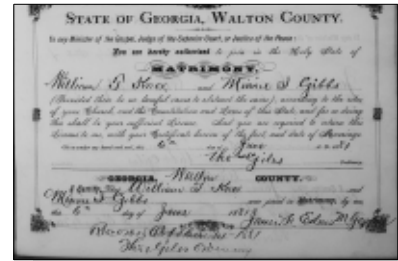 STATE OF GEORGIA, WALTON COUNTY.
To any Minister of the Gospel, Judge of the Superior Court, or Justice of the Peace:
You are hereby authorized to join in the Holy State of
MATRIMONY,
William T Knox and Minnie I Gibbs
(Provided there be no lawful cause to obstruct the same), according to the rites
of your Church, and the Constitution and Laws of this State, and for so doing
this shall be your sufficient License. And you are required to return this
License to me, with your Certificate hereon of the fact and date of Marriage.
Given under my hand and seal, this 6th day of June
Giles
GEORGIA, Walton COUNTY.
I Certify, That William T Knox and
Minnie I Gibbs were joined in Matrimony, by me
this 6th day of June
Ordinary